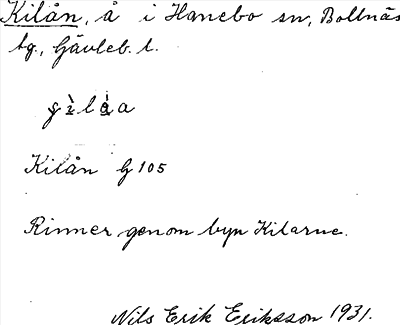 Kilån, å i Hanebo sn, Bollnäs
tg., Gävleb. l.
Kilån G 105
Rinner genom byn Kilarne.
Nils Erik Eriksson 1931.